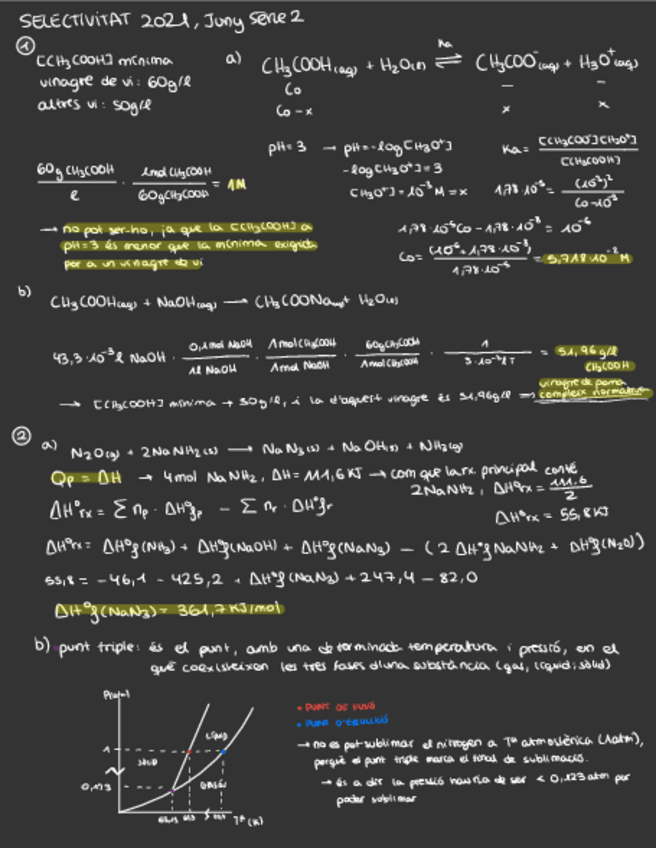 SELECTIVITAT 2021, Juny Serie 2
①
[CH₃COOH] mínima
vinagre de vi: 60g/l
altres vi: 50g/l
a) CH₃COOH(aq) + H₂O(l) ⇌ CH₃COO⁻(aq) + H₃O⁺(aq)
Ka
Co – –
Co-x x x
pH=3 → pH=-log[H₃O⁺]
-log[H₃O⁺]=3
[H₃O⁺]=10⁻³M=x
Ka= [CH₃COO⁻][H₃O⁺] / [CH₃COOH]
1,78·10⁻⁵= (10⁻³)² / Co-10⁻³
60g CH₃COOH / l · 1mol CH₃COOH / 60g CH₃COOH = 1M
1,78·10⁻⁵Co - 1,78·10⁻⁸ = 10⁻⁶
Co= (10⁻⁶+1,78·10⁻⁸) / 1,78·10⁻⁵ = 5,718·10⁻² M
→ no pot ser-ho, ja que la [CH₃COOH] a
pH=3 és menor que la mínima exigida
per a un vinagre de vi
b)
CH₃COOH(aq) + NaOH(aq) → CH₃COONa(aq) + H₂O(l)
43,3·10⁻³l NaOH · 0,1mol NaOH / 1l NaOH · 1mol CH₃COOH / 1mol NaOH · 60g CH₃COOH / 1mol CH₃COOH · 1 / 5·10⁻³l = 51,96 g/l CH₃COOH
→ [CH₃COOH] mínima → 50g/l, i la d'aquest vinagre és 51,96g/l ⇒ vinagre de poma
compleix normativa
②
a) N₂O(g) + 2NaNH₂(s) → NaN₃(s) + NaOH(s) + NH₃(g)
Qp = ΔH → 4mol NaNH₂, ΔH=111,6KJ → com que la rx. principal conté
2NaNH₂, ΔH°rx = 111,6 / 2
ΔH°rx = Σ np · ΔH°fp - Σ nr · ΔH°fr
ΔH°rx = 55,8KJ
ΔH°rx= ΔH°f(NH₃) + ΔH°f(NaOH) + ΔH°f(NaN₃) - (2 ΔH°fNaNH₂ + ΔH°f(N₂O))
55,8 = -46,1 - 425,2 + ΔH°f(NaN₃) + 247,4 - 82,0
ΔH°f(NaN₃) = 361,7KJ/mol
b) punt triple: és el punt, amb una determinada temperatura i pressió, en el
què coexisteixen les tres fases d'una substància (gas, líquid i sòlid)
P(atm)
1
SÒLID
LÍQUID
GASÓS
63,15
T°(K)
• PUNT DE FUSIÓ
• PUNT D'EBULLICIÓ
→ no es pot sublimar el nitrogen a Tª atmosfèrica (1atm),
perquè el punt triple marca el final de sublimació.
→ és a dir la pressió hauria de ser < 0,123atm per
poder sublimar